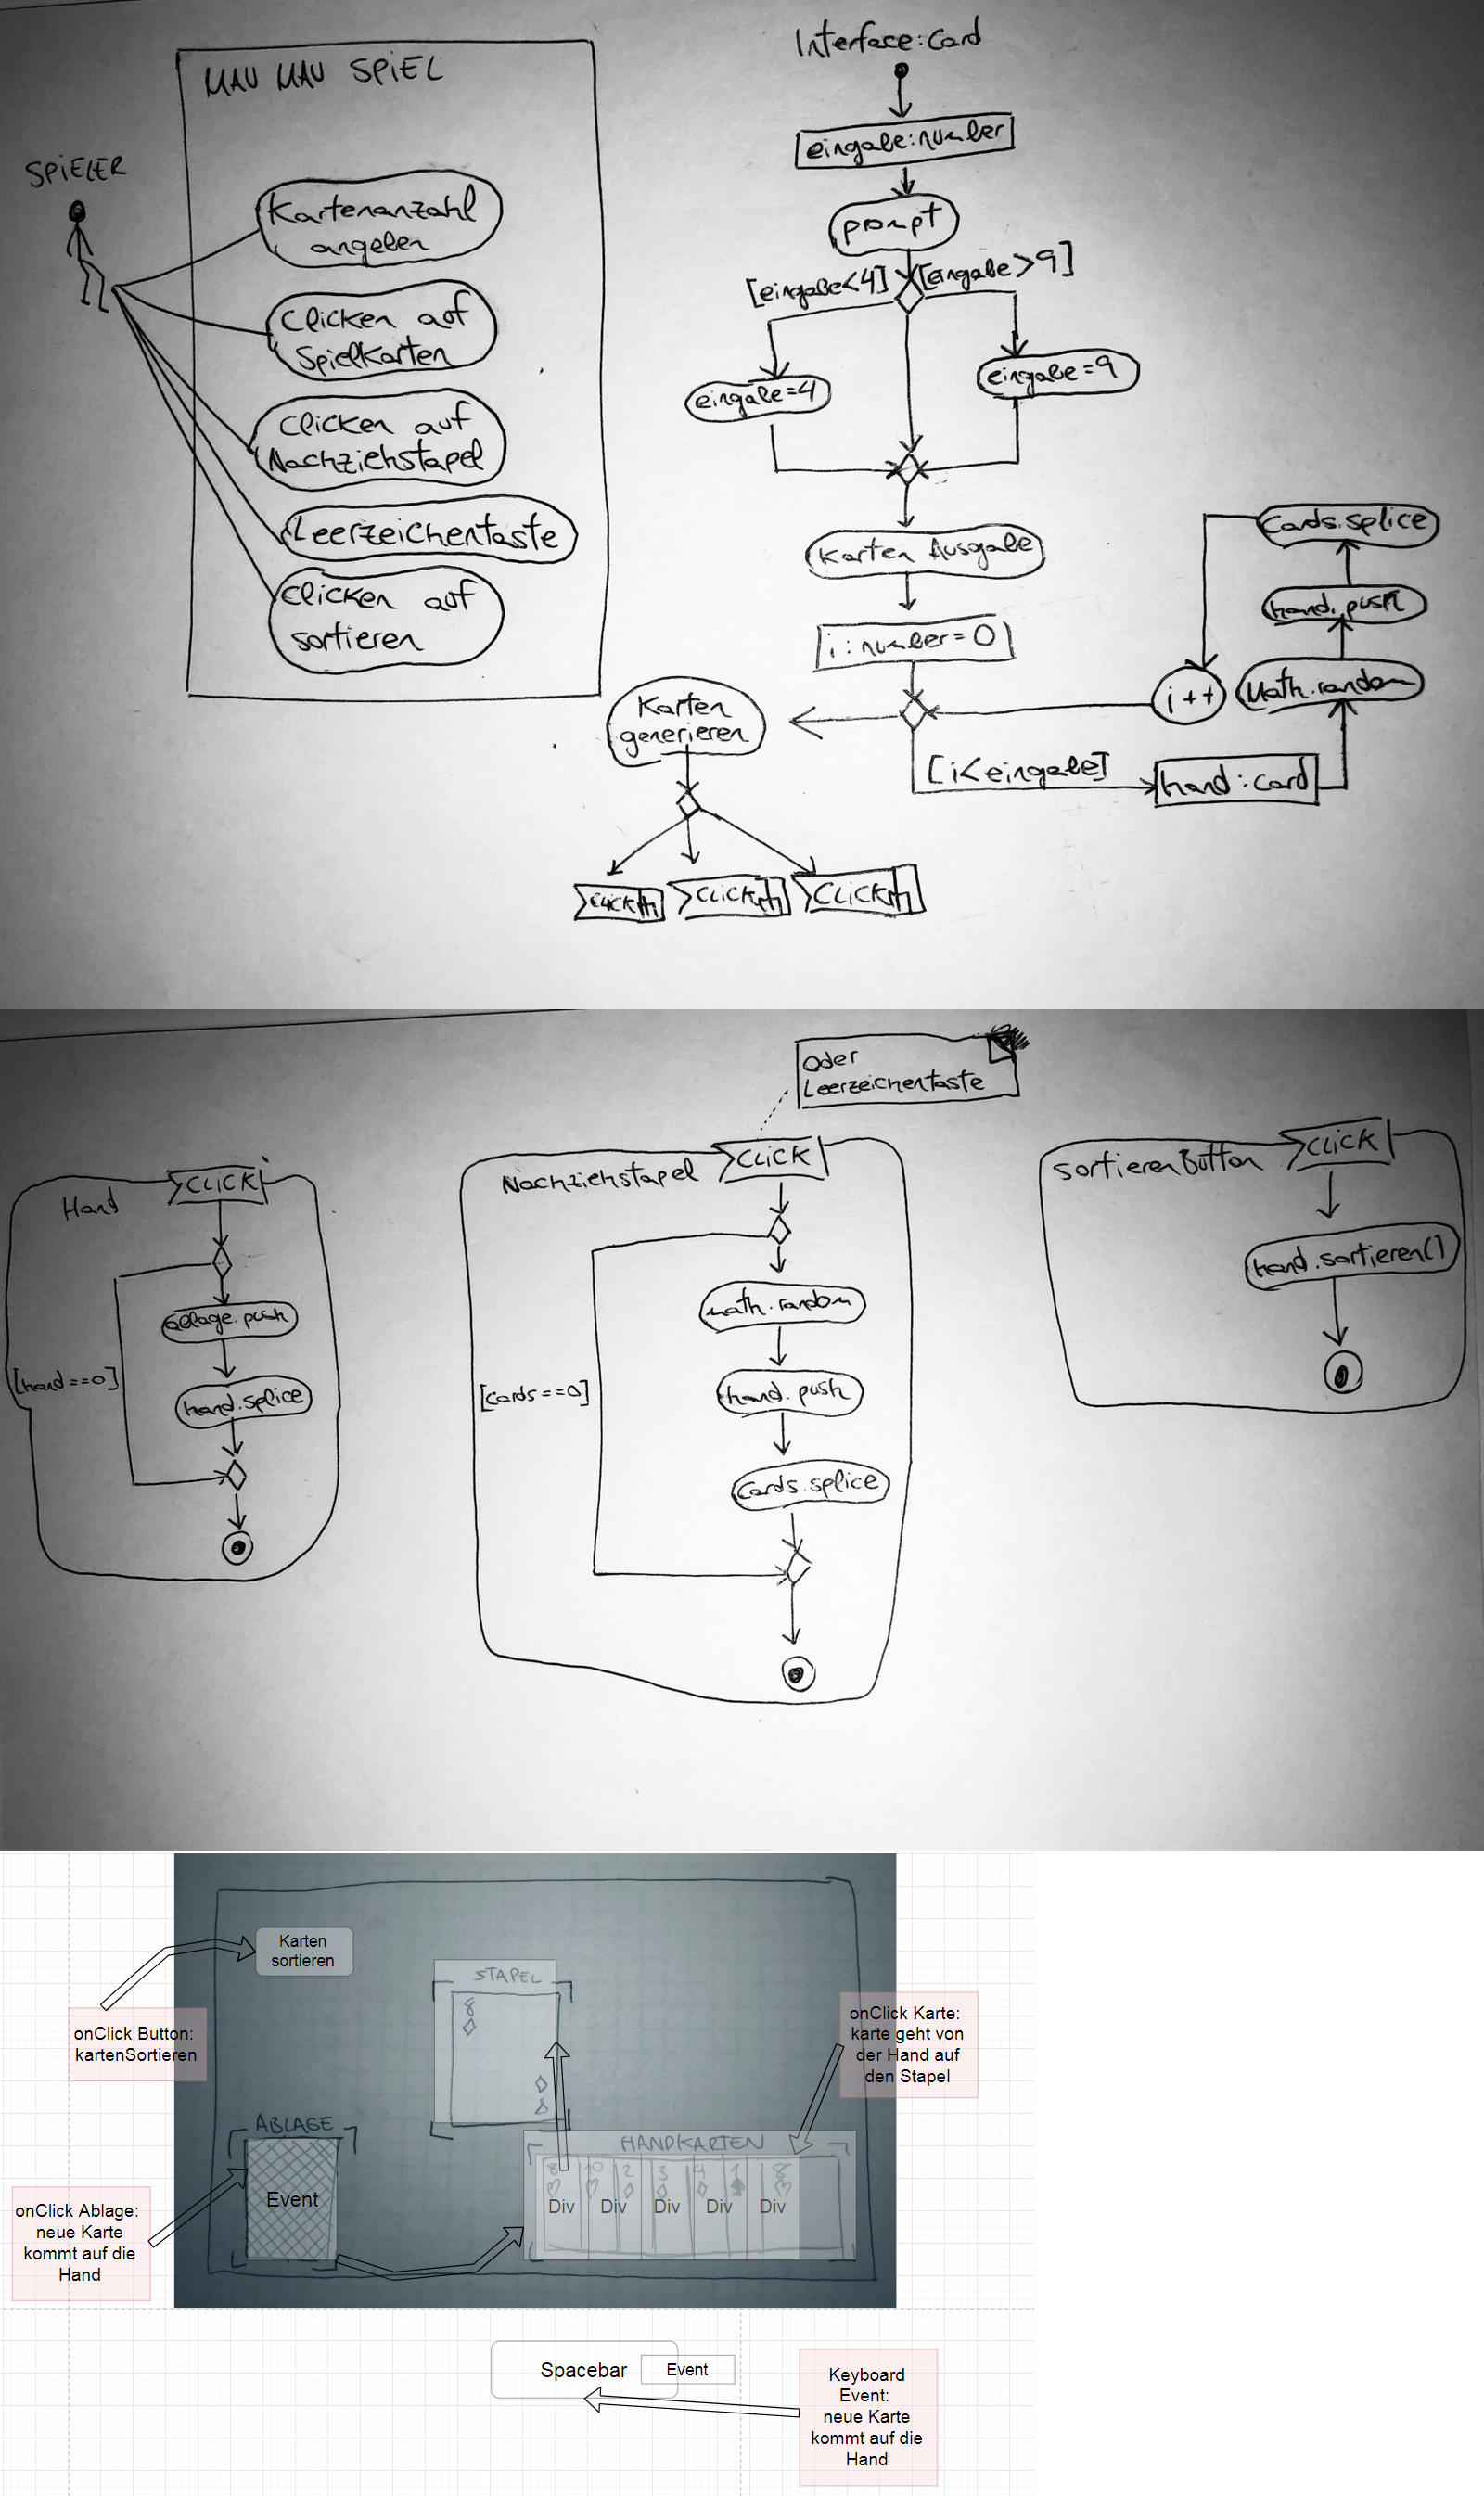 MAU MAU SPIEL
SPIELER
Kartenanzahl
angeben
Clicken auf
Spielkarten
Clicken auf
Nachziehstapel
Leerzeichentaste
Clicken auf
sortieren
Interface: Card
eingabe: number
prompt
[eingabe<4]
[eingabe>9]
eingabe=4
eingabe=9
Karten Ausgabe
i: number = 0
Karten
generieren
[i<eingabe]
hand: Card
Math.random
hand.push
Cards.splice
i++
CLICK
CLICK
CLICK
Oder
Leerzeichentaste
Hand
CLICK
ablage.push
[hand==0]
hand.splice
Nachziehstapel
CLICK
math.random
[cards==0]
hand.push
Cards.splice
sortierenButton
CLICK
hand.sortieren()
Karten
sortieren
onClick Button:
kartenSortieren
STAPEL
8
8
onClick Karte:
karte geht von
der Hand auf
den Stapel
ABLAGE
Event
onClick Ablage:
neue Karte
kommt auf die
Hand
HANDKARTEN
8 10 2 3 4 1 8
Div Div Div Div Div
Spacebar
Event
Keyboard
Event:
neue Karte
kommt auf die
Hand